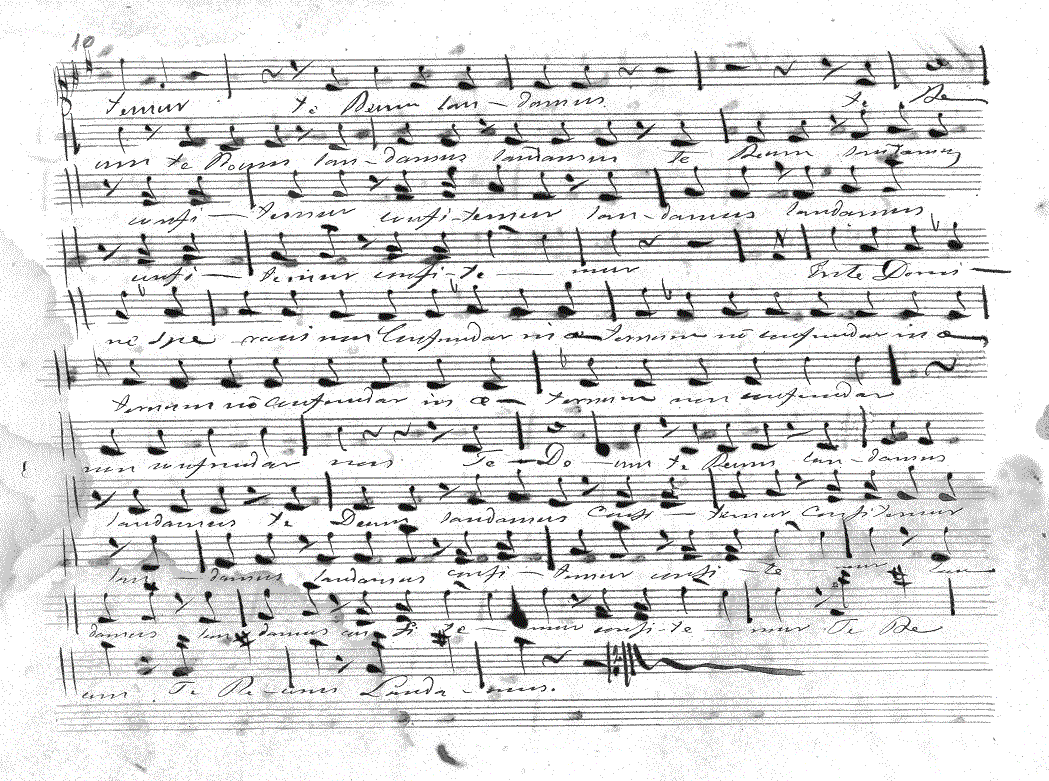 10
temur te Deum lau - damus te De
um te Deum lau - damus laudamus te Deum laudamus
confi - temur confi - temur lau - damus laudamus
confi - temur confi - te - mur In te Domi -
ne spe ravi non confundar in æ - ternum nō confundar in æ
ternum nō confundar in æ - ternum non confundar
non confundar non Te - De - um te Deum lau - damus
laudamus te Deum laudamus confi - temur confitemur
lau - damus laudamus confi - temur confi - te - mur lau
damus lau - damus con fi - te - mur confi - te - mur Te De
um Te De - um Lauda - mus.